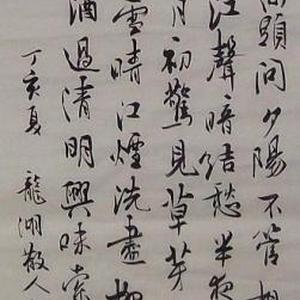 頭問夕陽不管
江聲暗結愁半夜
月初驚見草芽
雪晴江煙洗盡柳
酒過清明興味索
丁亥夏 龍湖散人